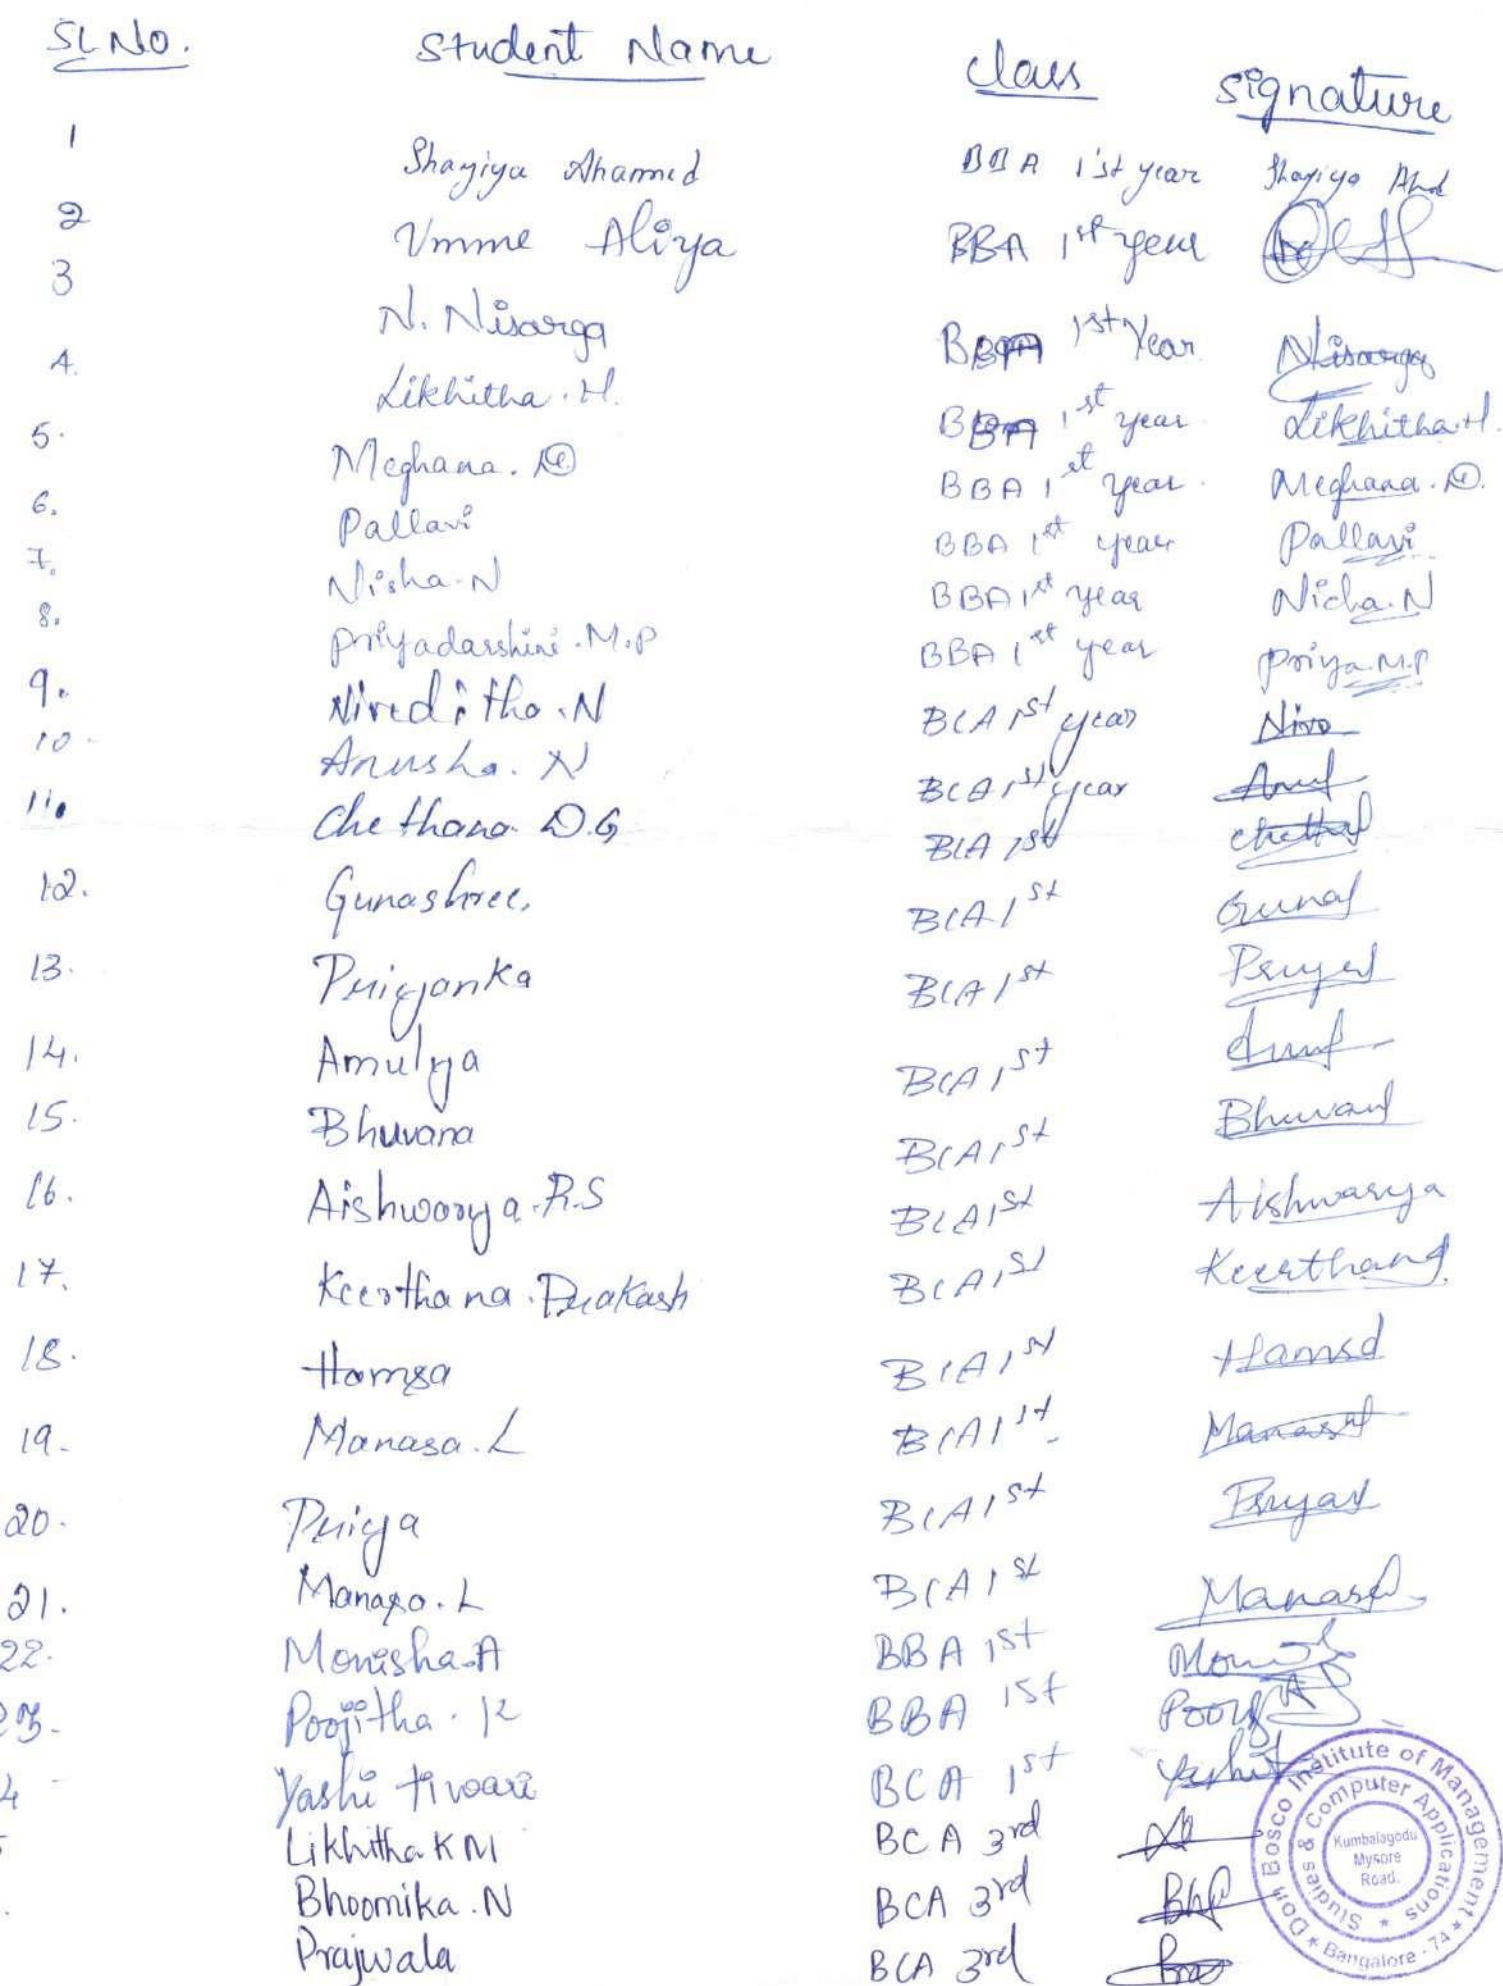 SL No. Student Name Class Signature
1 Shayiya Ahammed BBA 1st year Shayiya
2 Umme Aliya BBA 1st year
3 N. Nisarga BBA 1st Year Nisarga
4. Likhitha. H. BBA 1st year Likhitha. H.
5. Meghana. D BBA 1st year Meghana. D.
6. Pallavi BBA 1st year Pallavi
7. Nisha. N BBA 1st year Nisha. N
8. Priyadarshini. M.P BBA 1st year Priya. M.P
9. Niveditha. N BCA 1st year Nive
10. Anusha. N BCA 1st year
11. Chethana D.G BCA 1st
12. Gunashree. BCA 1st
13. Priyanka BCA 1st
14. Amulya BCA 1st
15. Bhuvana BCA 1st
16. Aishwarya. R.S BCA 1st Aishwarya
17. Keerthana. Prakash BCA 1st Keerthana
18. Hamsa BCA 1st Hamsa
19. Manasa. L BCA 1st Manasa
20. Priya BCA 1st
21. Manasa. L BCA 1st Manasa
22. Monisha. A BBA 1st
23. Poojitha. K BBA 1st
4 Yashi Tiwari BCA 1st
Likhitha K M BCA 3rd
Bhoomika. N BCA 3rd
Prajwala BCA 3rd
Don Bosco Institute of Management * Bangalore - 74 *
Studies & Computer Applications *
Kumbalagodu
Mysore
Road.